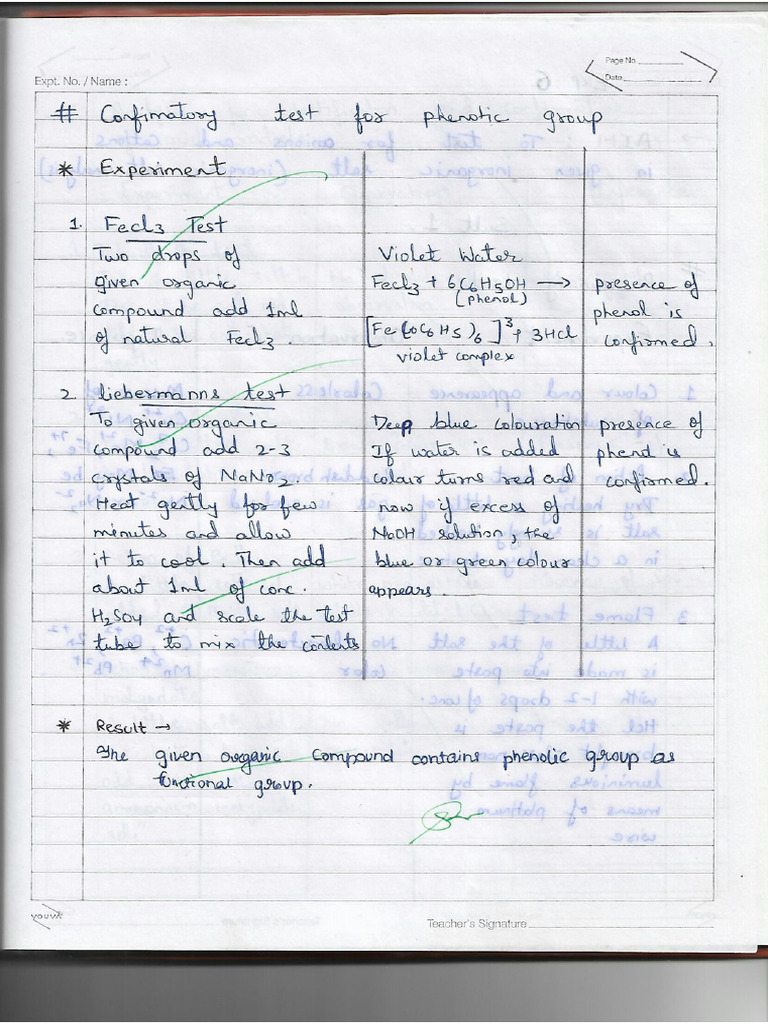 Expt. No. / Name :
Page No.
Date
# Confimatory test for phenolic group
* Experiment
1. Fecl3 Test
Two drops of
given organic
compound add 1ml
of natural Fecl3.
Violet Water
Fecl3 + 6C6H5OH →
(phenol)
[Fe(OC6H5)6]3 + 3Hcl
violet complex
presence of
phenol is
confirmed.
2. liebermanns test
To given organic
compound add 2-3
crystals of NaNO2.
Heat gently for few
minutes and allow
it to cool. Then add
about 1ml of conc.
H2SO4 and scale the test
tube to mix the contents
Deep blue colouration
If water is added
colour turns red and
now if excess of
NaOH solution, the
blue or green colour
appears.
presence of
phenol is
confirmed.
* Result →
The given organic compound contains phenolic group as
functional group.
Teacher's Signature